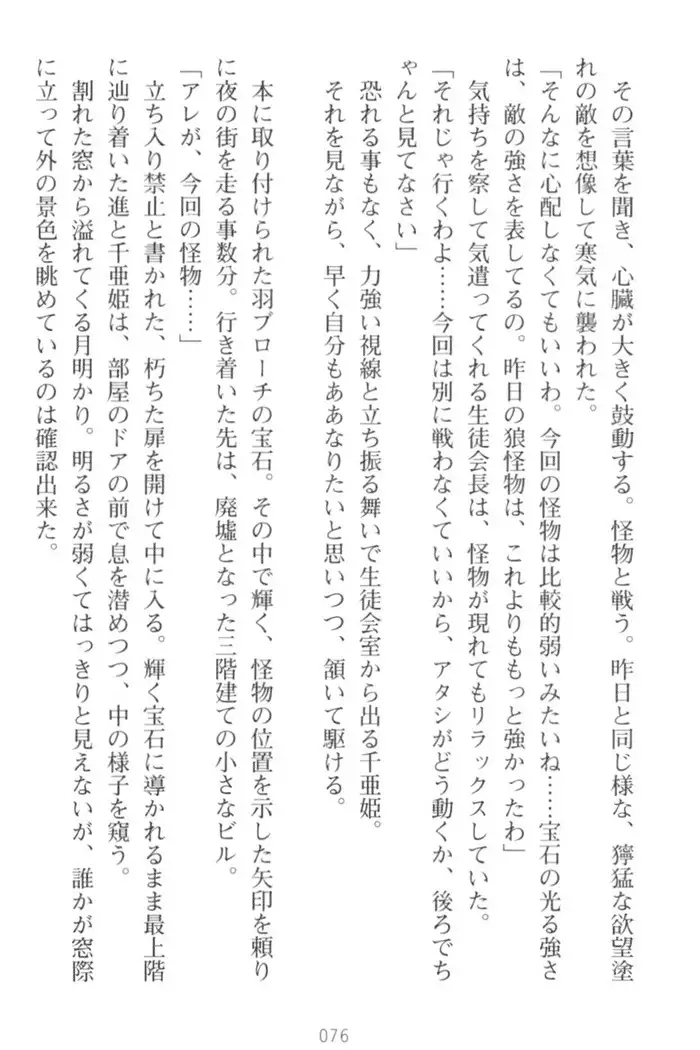 その言葉を聞き、心臓が大きく鼓動する。怪物と戦う。昨日と同じ様な、獰猛な欲望塗
れの敵を想像して寒気に襲われた。
「そんなに心配しなくてもいいわ。今回の怪物は比較的弱いみたいね……宝石の光る強さ
は、敵の強さを表してるの。昨日の狼怪物は、これよりももっと強かったわ」
　気持ちを察して気遣ってくれる生徒会長は、怪物が現れてもリラックスしていた。
「それじゃ行くわよ……今回は別に戦わなくていいから、アタシがどう動くか、後ろでち
ゃんと見てなさい」
　恐れる事もなく、力強い視線と立ち振る舞いで生徒会室から出る千亜姫。
　それを見ながら、早く自分もああなりたいと思いつつ、頷いて駆ける。
　本に取り付けられた羽ブローチの宝石。その中で輝く、怪物の位置を示した矢印を頼り
に夜の街を走る事数分。行き着いた先は、廃墟となった三階建ての小さなビル。
「アレが、今回の怪物……」
　立ち入り禁止と書かれた、朽ちた扉を開けて中に入る。輝く宝石に導かれるまま最上階
に辿り着いた進と千亜姫は、部屋のドアの前で息を潜めつつ、中の様子を窺う。
　割れた窓から溢れてくる月明かり。明るさが弱くてはっきりと見えないが、誰かが窓際
に立って外の景色を眺めているのは確認出来た。
076